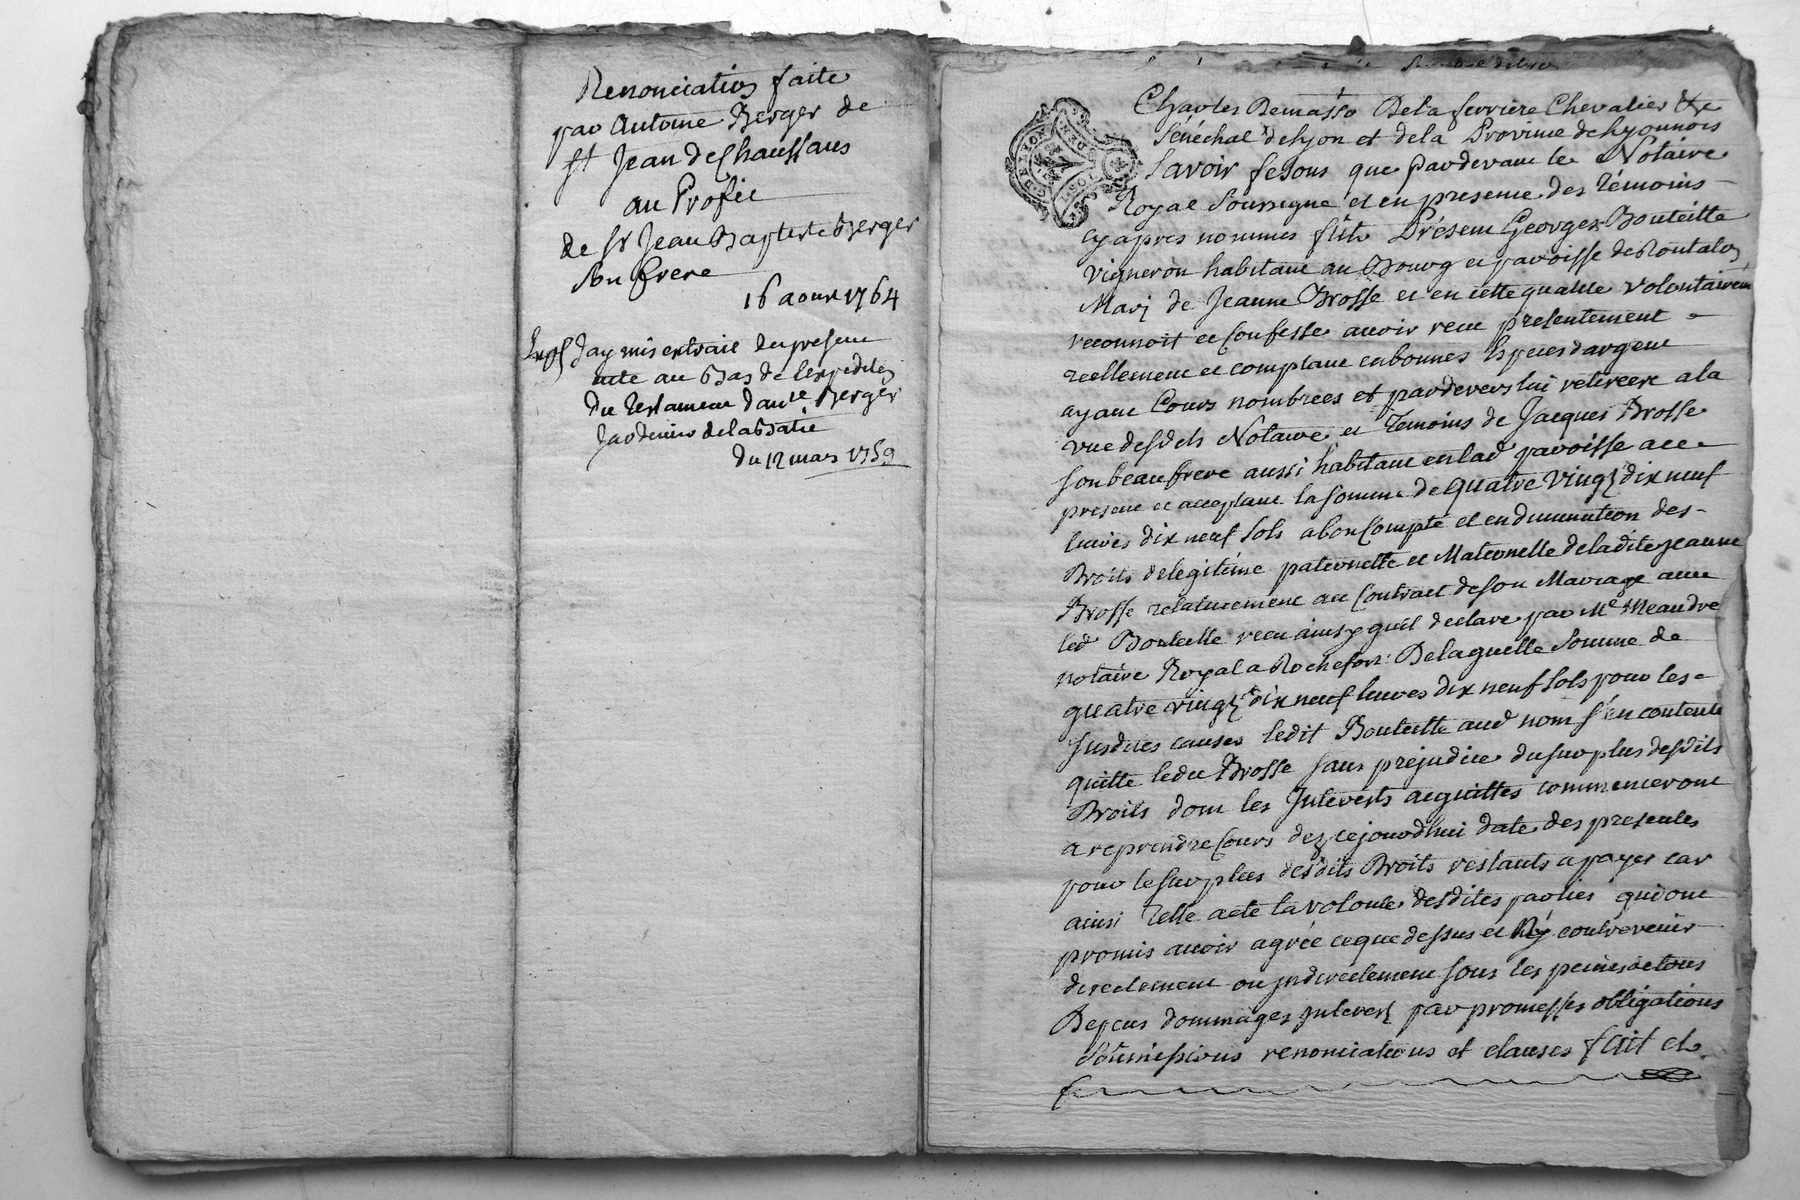 Renonciation faite
par Antoine Berger de
st Jean de Chaussans
au Profit
de Sr Jean Baptiste Berger
Son frere
16 aoust 1764
Jay mis extrait du present
acte au Bas de lexpedition
du Testament dantne Berger
Jardinier delabatie
du 12 mars 1759
Charles Demasso Dela ferriere Chevalier &c
Sénéchal delyon et dela Province de lyonnois
Savoir fesons que pardevant le Notaire
Royal Soussigné et en presence des témoins
cy apres nommés fut Présent Georges Bouteille
vigneron habitant au Bourg et paroisse de Rontalon
Mary de Jeanne Brosse et en cette qualité volontairement
reconnoit et confesse avoir recu presentement
reellement et comptant en bonnes Especes dargent
ayant Cours nombrées et pardevers lui retirées a la
vue desdits Notaire et Temoins de Jacques Brosse
son beaufrere aussi habitant en lad paroisse ace
present et acceptant la somme de quatre vingt dix neuf
livres dix neuf sols abon Compte et en diminution des
Droits delegitime paternelle et Maternelle deladite Jeanne
Brosse relativement au Contract de son Mariage avec
led Bouteille recu ainsy quil declare par Me Meandre
notaire Royal a Rochefort Delaquelle Somme de
quatre vingt dix neuf livres dix neuf sols pour les
susdites causes ledit Bouteille aud nom s'en contente
quitte ledit Brosse sans prejudice du surplus desdits
Droits dont les Interests acquittés commenceront
a reprendre Cours dez cejourdhui date des presentes
pour le surplus desdits Droits restants a payer car
ainsi Telle a été la volonté desdites parties qui ont
promis avoir agréé ce que dessus et Ny contrevenir
directement ou jndirectement sous les peines de tous
Depens dommages jnterest par promesses obligations
Soumissions renonciations et clauses fait et